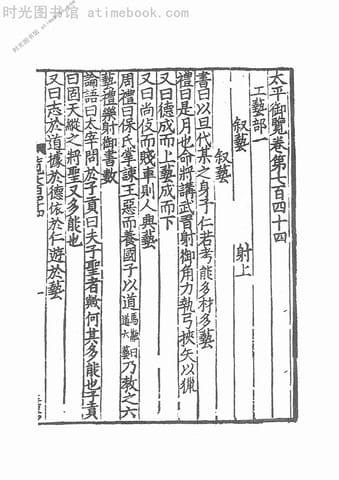 时光图书馆 atimebook.com
太平御覽卷第七百四十四
工藝部一
叙藝 射上
叙藝
書曰以旦代某之身予仁若考能多材多藝
禮曰是月也命將講武習射御角力執弓挾矢以獵
又曰德成而上藝成而下
又曰尚伎而賤車則人典藝
周禮曰保氏掌諫王惡而養國子以道馬融曰道六藝乃教之六
藝禮樂射御書數
論語曰太宰問於子貢曰夫子聖者歟何其多能也子貢
曰固天縱之將聖又多能也
又曰志於道據於德依於仁遊於藝
时光图书馆 atimebook.com